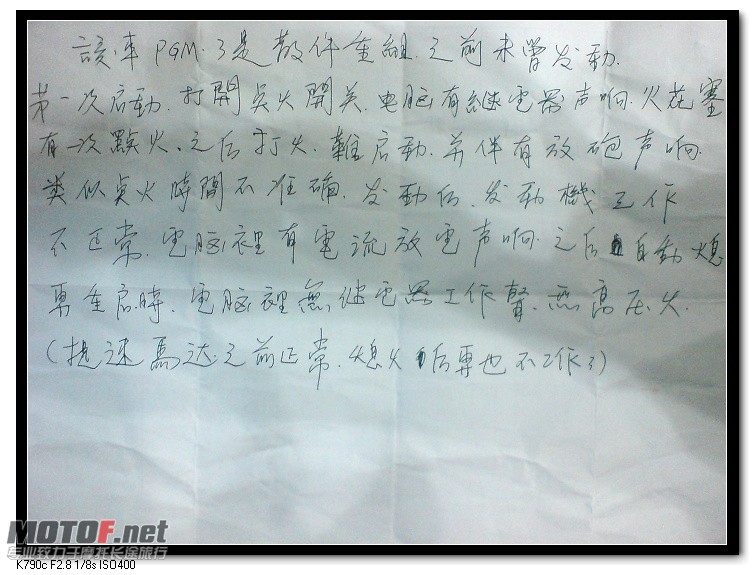 該車 PGM.3是散件重組.之前未曾发动.
第一次启动.打開点火開关.电脑有继電器声响.火花塞
有一次點火.之后打火.難启动.并伴有放砲声响.
类似点火時間不准确.发動后.发動機工作
不正常.電脑裡有電流放電声响.之后自動熄
再重启時.電脑裡無继電器工作聲.無高压火.
(提速馬达之前正常.熄火后再也不工作了)
MOTOF.net
专业致力于摩托长途旅行
K790c F2.8 1/8s ISO400